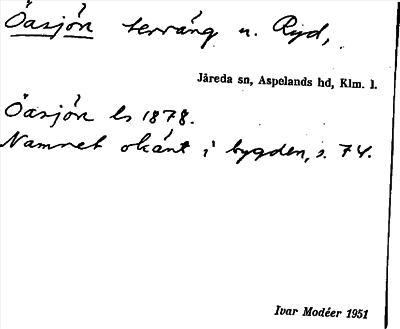 Öasjön terräng n. Ryd,
Järeda sn, Aspelands hd, Klm. l.
Öasjön ls 1878.
Namnet okänt i bygden, s. 74.
Ivar Modéer 1951